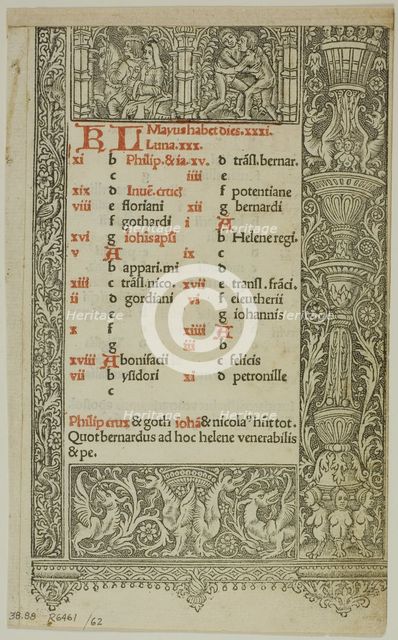 KL Mayus habet dies.xxxi.
Luna.xxx.
xi b Philip.& ia.xv. d trãsl.bernar.
c iiii e
xix d Inuẽ.crucꝭ f potentiane
viii e floriani xii g bernardi
f gothardi i A
xvi g iohis apſi b Helene regi.
v A ix c
b appari.mi d
xiii c trãsl.nico. xvii e transl.frãci.
ii d gordiani vi f eleutherii
e g iohannis
x f xiiii A
g iii b
xviii A bonifacii c felicis
vii b yſidori xi d petronille
c
Philip crux & goth iohã & nicolaꝰ
Quot bernardus ad hoc helene venerabilis
& pe.
Heritage
Heritage
Heritage
Heritage
Heritage
Heritage
C
38.88 R6461 /62